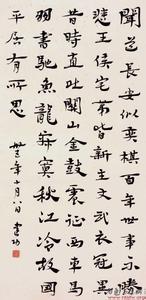 聞道長安似奕棋百年世事不勝
悲王侯宅第皆新主文武衣冠異
昔時直北關山金鼓震征西車馬
羽書馳魚龍寂寞秋江冷故國
平居有所思
年十月八日